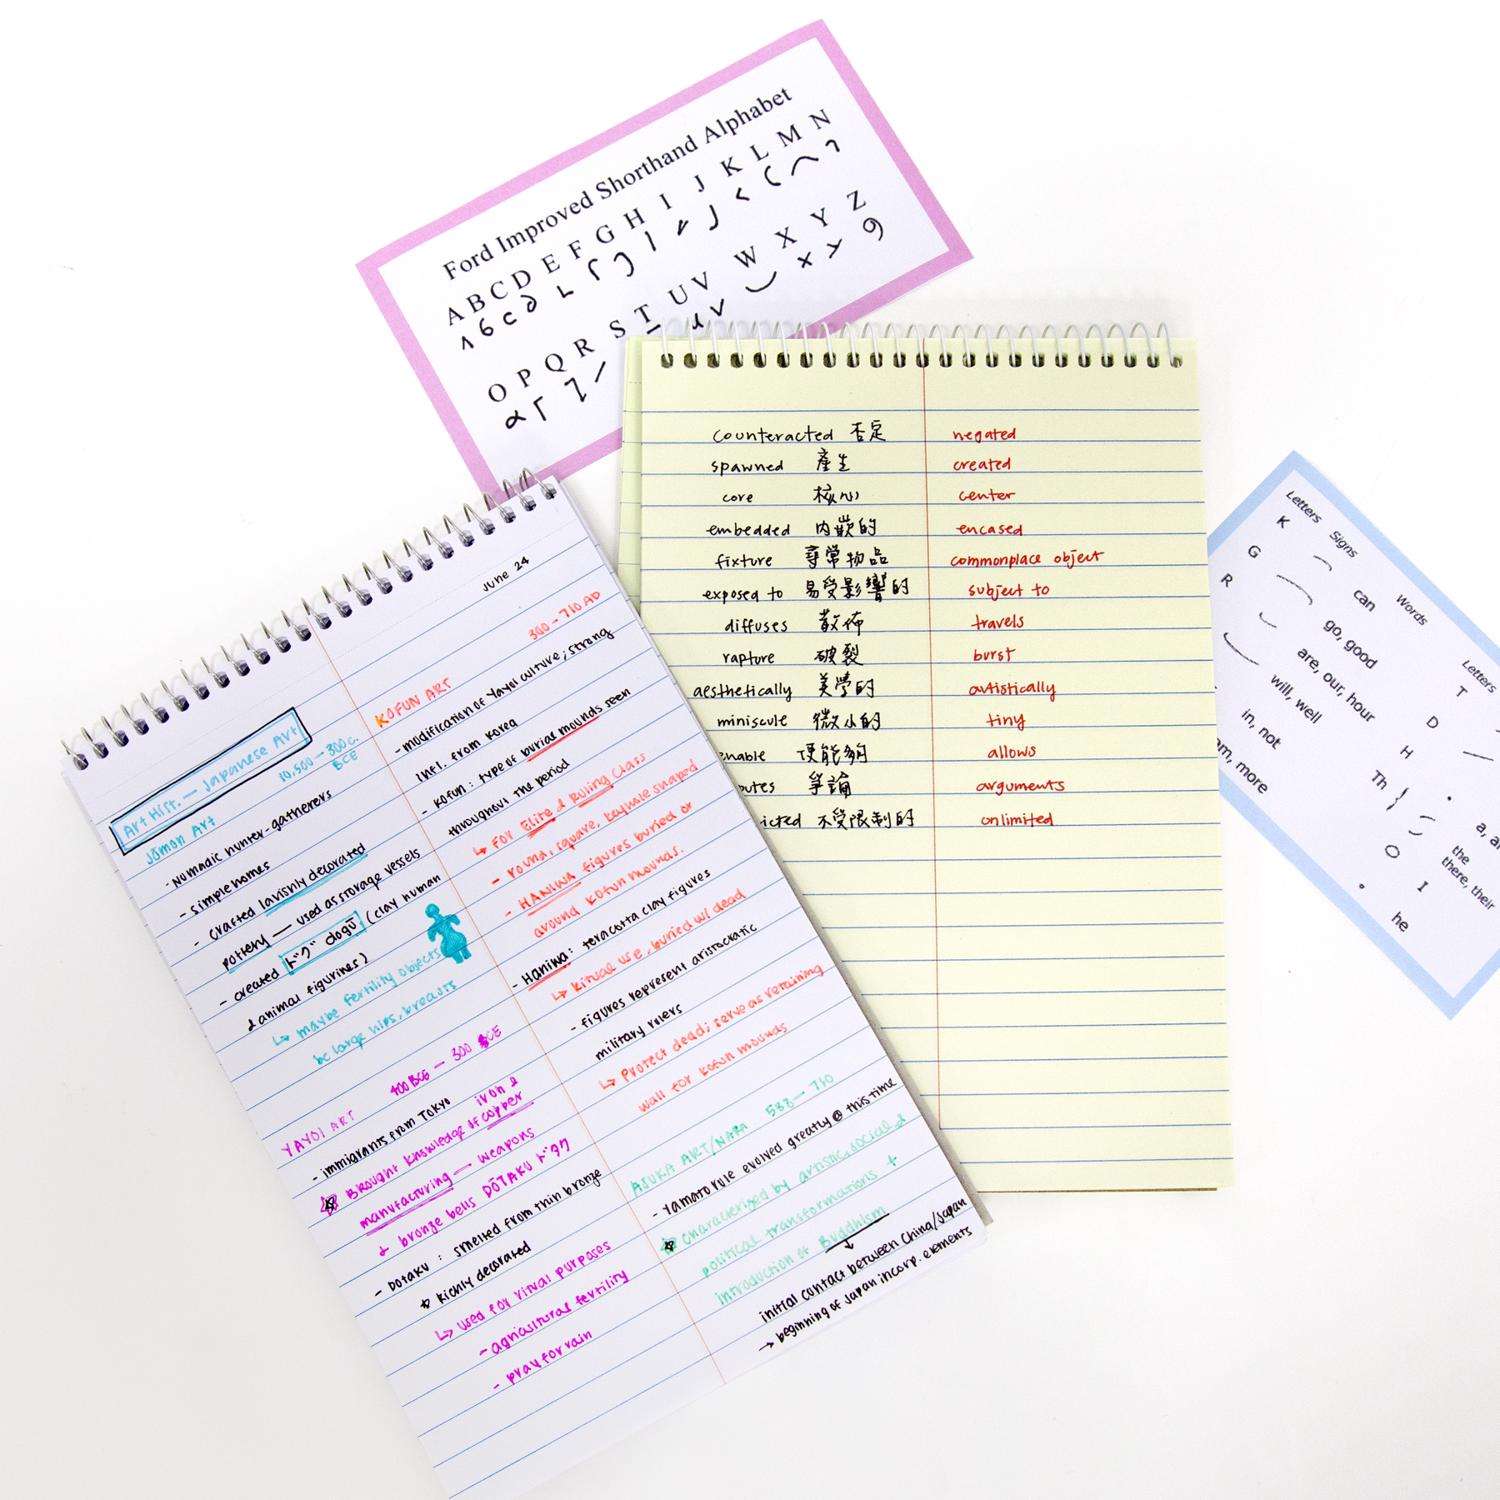 Ford Improved Shorthand Alphabet
A B C D E F G H I J K L M N
O P Q R S T U V W X Y Z
counteracted 否定 negated
spawned 產生 created
core 核心 center
embedded 內嵌的 encased
fixture 尋常物品 commonplace object
exposed to 易受影響的 subject to
diffuses 散佈 travels
rapture 破裂 burst
aesthetically 美學的 artistically
miniscule 微小的 tiny
enable 使能夠 allows
爭論 arguments
不受限制的 unlimited
June 24
Art Hist. — Japanese Art
10,500 → 300 c. BCE
Jōmon Art
- Nomadic hunter-gatherers
- simple homes
- crafted lavishly decorated
pottery — used as storage vessels
- created ドグ dogū (clay human
& animal figurines)
↳ maybe fertility objects
bc large hips, breasts
YAYOI ART 400 BCE — 300 CE
- immigrants from Tokyo
Brought knowledge of iron & copper
manufacturing — weapons
& bronze bells DŌTAKU ドタク
- Dotaku : smelted from thin bronze
richly decorated
↳ used for ritual purposes
- agricultural fertility
- pray for rain
KOFUN ART 300 → 710 AD
- modification of Yayoi culture; strong
infl. from Korea
- Kofun : type of burial mounds seen
throughout the period
↳ For Elite & Ruling Class
- round, square, keyhole shaped
- HANIWA figures buried or
around Kofun mounds.
- Haniwa : teracotta clay figures
↳ Ritual use, buried w/ dead
- figures represent aristocratic
military rulers
↳ Protect dead; serve as retaining
wall for Kofun mounds
ASUKA ART/NARA 538 → 710
- Yamato rule evolved greatly @ this time
characterized by artistic, social &
political transformations +
introduction of Buddhism
↓
initial contact between China/Japan
→ beginning of Japan incorp. elements
Letters Signs Words
K can
G go, good
R are, our, hour
will, well
in, not
more
Letters
T
D
H
Th
a,
the
there, their
O I
he